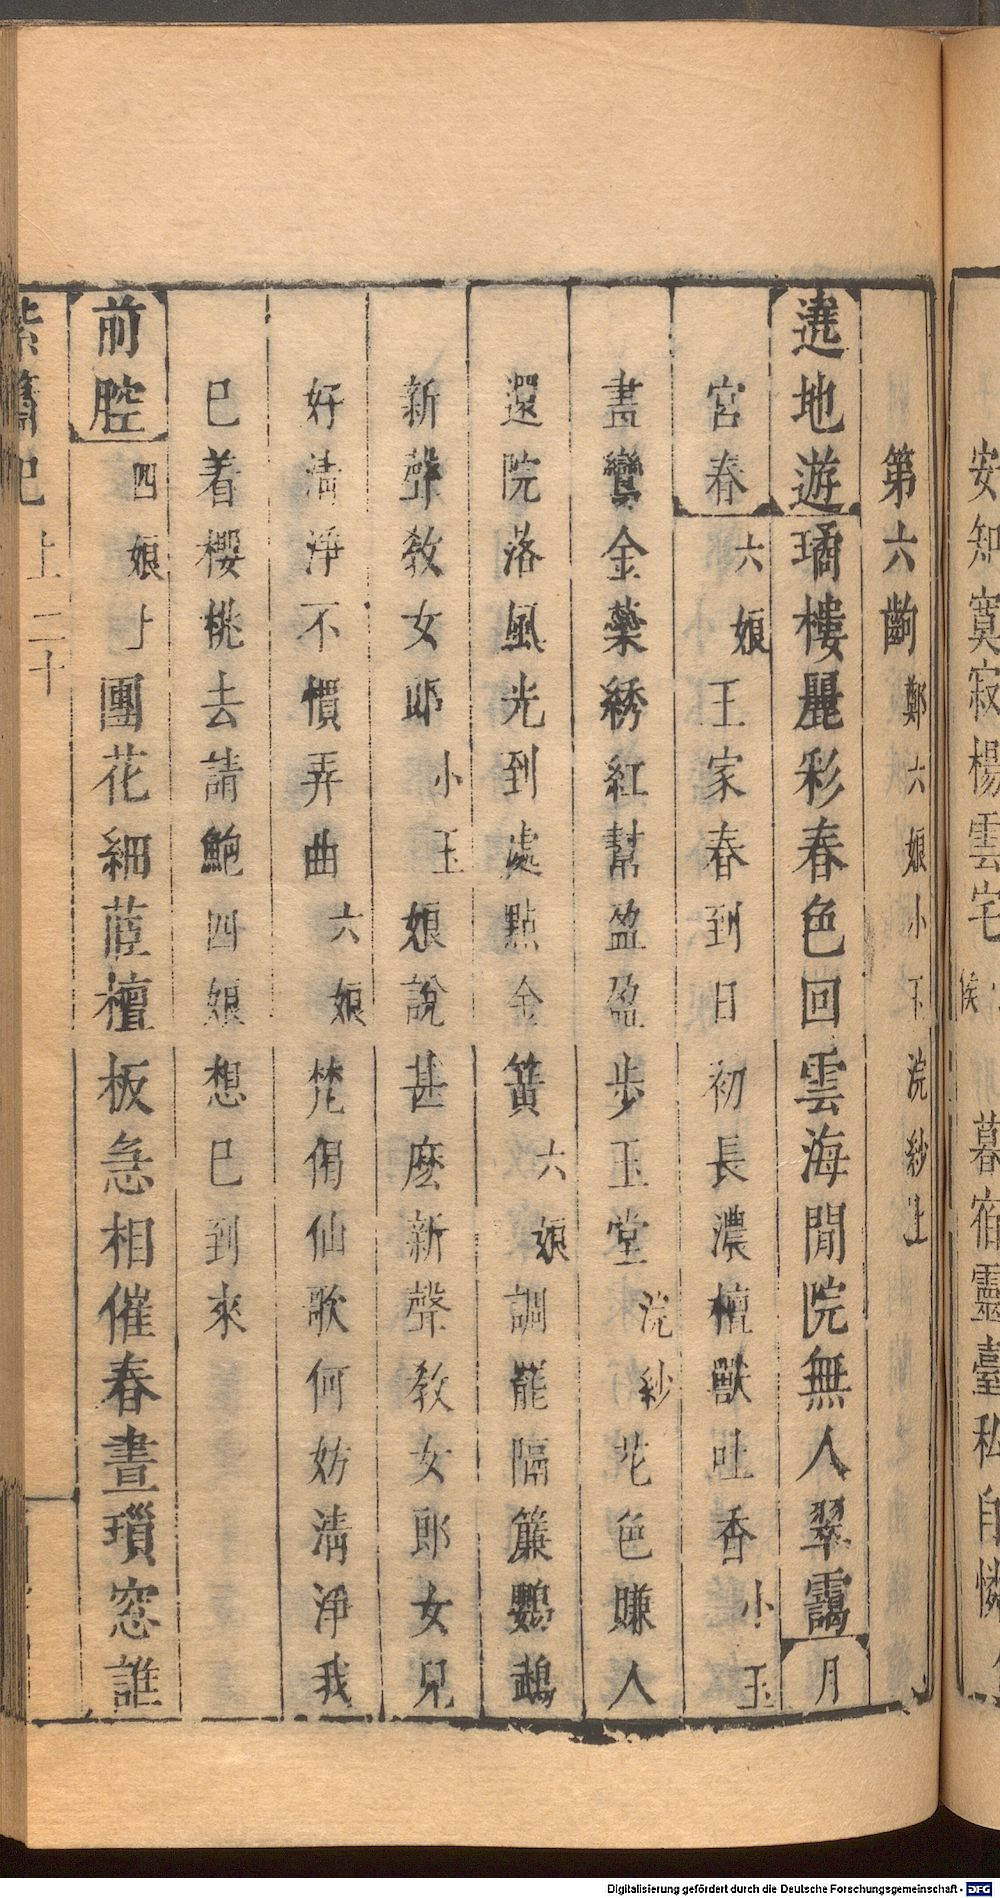 安知寞寂楊雲宅
候
暮宿靈臺私自憐
第六齣 鄭六娘小玉浣紗上
遶地遊 璚樓麗彩春色回雲海閒院無人翠靄 月
宮春 六娘 王家春到日初長濃檀獸吐香 小玉
畵鸞金蘂綉紅幫盈盈步玉堂 浣紗 花色嫌人
還院落風光到處點金簧 六娘 調罷隔簾鸚鵡
新聲教女郎 小玉 娘說甚麽新聲教女郎女兒
好淸淨不慣弄曲 六娘 梵侶仙歌何妨淸淨我
已着櫻桃去請鮑四娘想已到來
前腔 四娘上 團花細蔻檀板急相催春晝瑣窓誰
紫簫記 上 二十
Digitalisierung gefördert durch die Deutsche Forschungsgemeinschaft - DFG